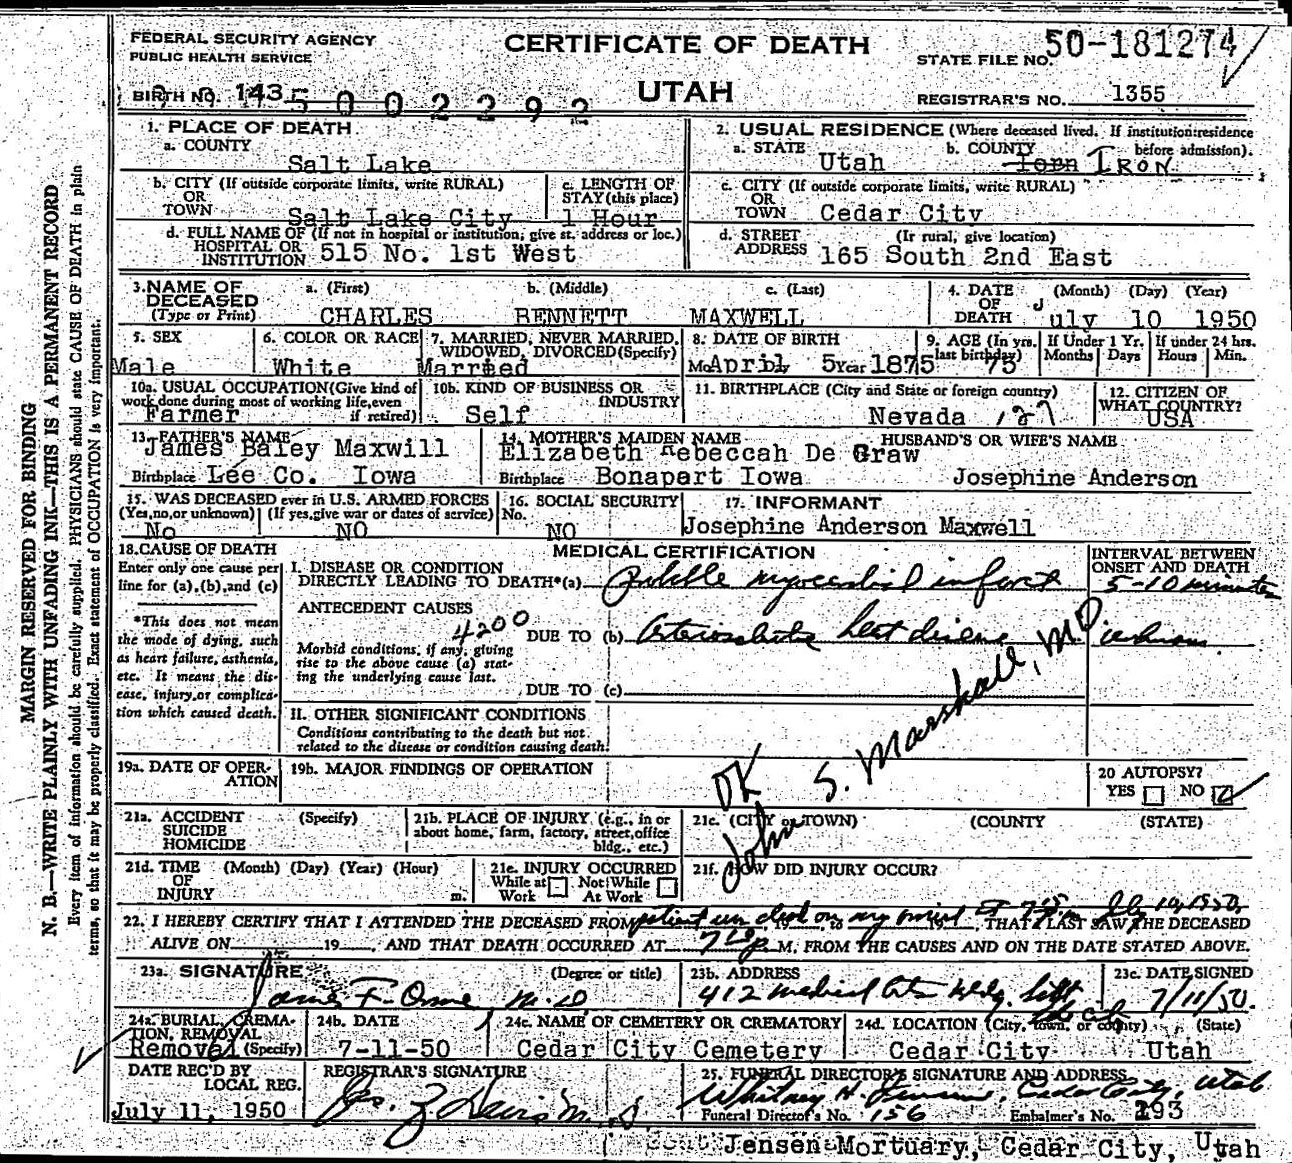 FEDERAL SECURITY AGENCY
PUBLIC HEALTH SERVICE
CERTIFICATE OF DEATH
UTAH
STATE FILE NO. 50-181274
BIRTH NO. 143
5 0 0 2 2 9 2
REGISTRAR'S NO. 1355
MARGIN RESERVED FOR BINDING
N. B.—WRITE PLAINLY WITH UNFADING INK—THIS IS A PERMANENT RECORD
Every item of information should be carefully supplied. PHYSICIANS should state CAUSE OF DEATH in plain
terms, so that it may be properly classified. Exact statement of OCCUPATION is very important.
1. PLACE OF DEATH
a. COUNTY
Salt Lake
2. USUAL RESIDENCE (Where deceased lived. If institution: residence before admission).
a. STATE Utah
b. COUNTY IRON
b. CITY (If outside corporate limits, write RURAL)
OR
TOWN Salt Lake City
c. LENGTH OF STAY (this place)
1 Hour
c. CITY (If outside corporate limits, write RURAL)
OR
TOWN Cedar City
d. FULL NAME OF (If not in hospital or institution, give st. address or loc.)
HOSPITAL OR
INSTITUTION 515 No. 1st West
d. STREET ADDRESS (If rural, give location)
165 South 2nd East
3. NAME OF DECEASED
(Type or Print)
a. (First) b. (Middle) c. (Last)
CHARLES BENNETT MAXWELL
4. DATE OF DEATH
(Month) (Day) (Year)
July 10 1950
5. SEX
Male
6. COLOR OR RACE
White
7. MARRIED, NEVER MARRIED, WIDOWED, DIVORCED (Specify)
Married
8. DATE OF BIRTH
April 5 Year 1875
9. AGE (In yrs. last birthday)
75
If Under 1 Yr. Months Days
If under 24 hrs. Hours Min.
10a. USUAL OCCUPATION (Give kind of work done during most of working life, even if retired)
Farmer
10b. KIND OF BUSINESS OR INDUSTRY
Self
11. BIRTHPLACE (City and State or foreign country)
Nevada
12. CITIZEN OF WHAT COUNTRY?
USA
13. FATHER'S NAME
James Baley Maxwill
Birthplace Lee Co. Iowa
14. MOTHER'S MAIDEN NAME
Elizabeth Rebeccah De Graw
Birthplace Bonapart Iowa
HUSBAND'S OR WIFE'S NAME
Josephine Anderson
15. WAS DECEASED ever in U.S. ARMED FORCES
(Yes, no, or unknown) (If yes, give war or dates of service)
No NO
16. SOCIAL SECURITY No.
NO
17. INFORMANT
Josephine Anderson Maxwell
18. CAUSE OF DEATH
Enter only one cause per line for (a), (b), and (c)
*This does not mean the mode of dying, such as heart failure, asthenia, etc. It means the disease, injury, or complication which caused death.
MEDICAL CERTIFICATION
I. DISEASE OR CONDITION
DIRECTLY LEADING TO DEATH*(a) myocardial infarct
INTERVAL BETWEEN ONSET AND DEATH
5-10 minutes
ANTECEDENT CAUSES
4200
Morbid conditions, if any, giving rise to the above cause (a) stating the underlying cause last.
DUE TO (b) Arteriosclerotic heart disease
unknown
DUE TO (c)
II. OTHER SIGNIFICANT CONDITIONS
Conditions contributing to the death but not related to the disease or condition causing death.
OK
John S. Marshall, MD
19a. DATE OF OPERATION
19b. MAJOR FINDINGS OF OPERATION
20 AUTOPSY?
YES NO
21a. ACCIDENT SUICIDE HOMICIDE (Specify)
21b. PLACE OF INJURY (e.g., in or about home, farm, factory, street, office bldg., etc.)
21c. (CITY or TOWN) (COUNTY) (STATE)
21d. TIME OF INJURY (Month) (Day) (Year) (Hour) m.
21e. INJURY OCCURRED
While at Work Not While At Work
21f. HOW DID INJURY OCCUR?
22. I HEREBY CERTIFY THAT I ATTENDED THE DECEASED FROM patient was dead on my arrival, 19, to 19, THAT I LAST SAW THE DECEASED
ALIVE ON 19, AND THAT DEATH OCCURRED AT M. FROM THE CAUSES AND ON THE DATE STATED ABOVE.
23a. SIGNATURE (Degree or title)
James F. Orme M.D.
23b. ADDRESS
412 medical arts bldg.
23c. DATE SIGNED
7/11/50.
24a. BURIAL, CREMATION, REMOVAL (Specify)
Removal
24b. DATE
7-11-50
24c. NAME OF CEMETERY OR CREMATORY
Cedar City Cemetery
24d. LOCATION (City, town, or county) (State)
Cedar City Utah
DATE REC'D BY LOCAL REG.
July 11, 1950
REGISTRAR'S SIGNATURE
25. FUNERAL DIRECTOR'S SIGNATURE AND ADDRESS
Whitney H. Cedar City, Utah
Funeral Director's No. 156
Embalmer's No. 293
Jensen Mortuary, Cedar City, Utah